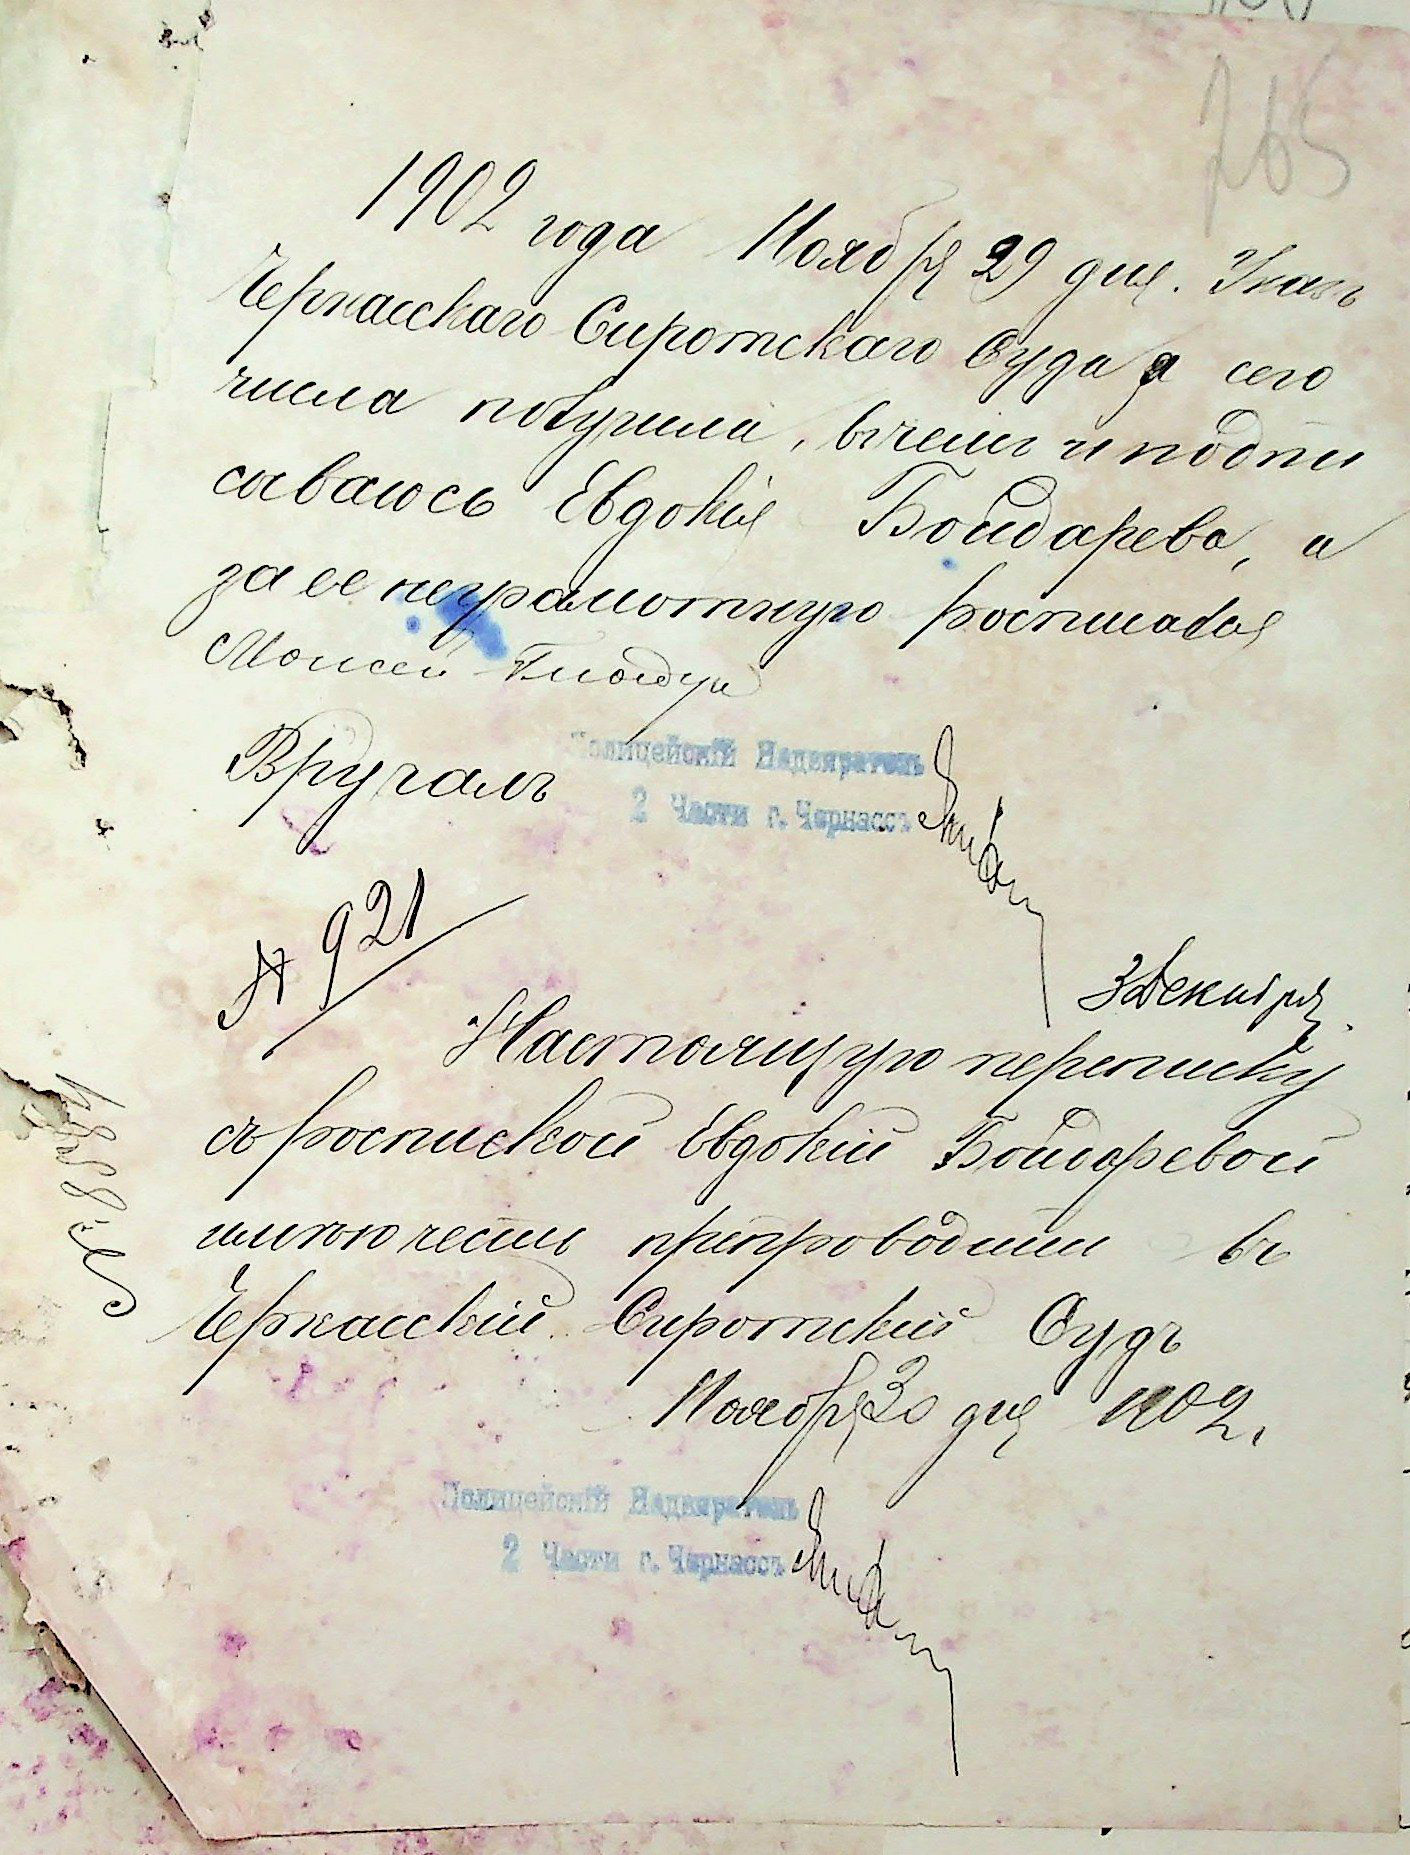 265
1902 года Ноября 29 дня. Указъ
Черкасскаго Сиротскаго Суда я сего
числа получила, въ чемъ и подпи
сываюсь Евдокія Бондарева, а
за ее неграмотную росписался
Моисей
Вручалъ
Полицейскій Надзиратель
2 Части г. Черкассъ
№ 921
3 Декабря
Настоящую переписку
съ роспиской Евдокіи Бондаревой
имѣю честь препроводить въ
Черкасскій Сиротскій Судъ
Ноября 30 дня 1902.
Полицейскій Надзиратель
2 Части г. Черкассъ